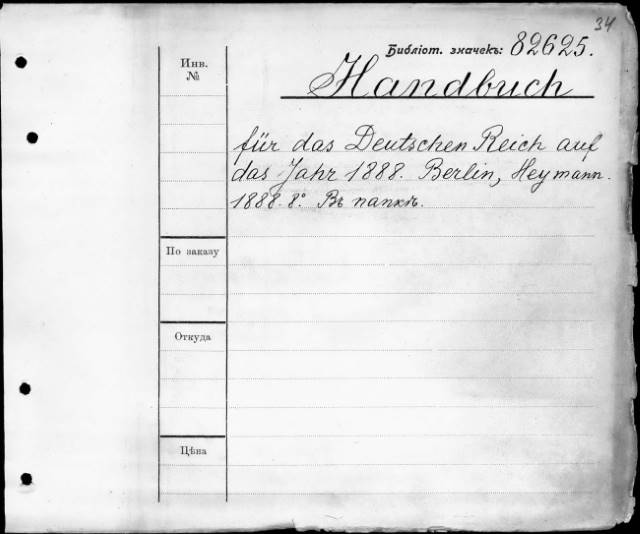 34
Библіот. значекъ: 82625.
Инв.
№
Handbuch
für das Deutschen Reich auf
das Jahr 1888. Berlin, Heymann.
1888. 8º. Въ папкѣ.
По заказу
Откуда
Цѣна